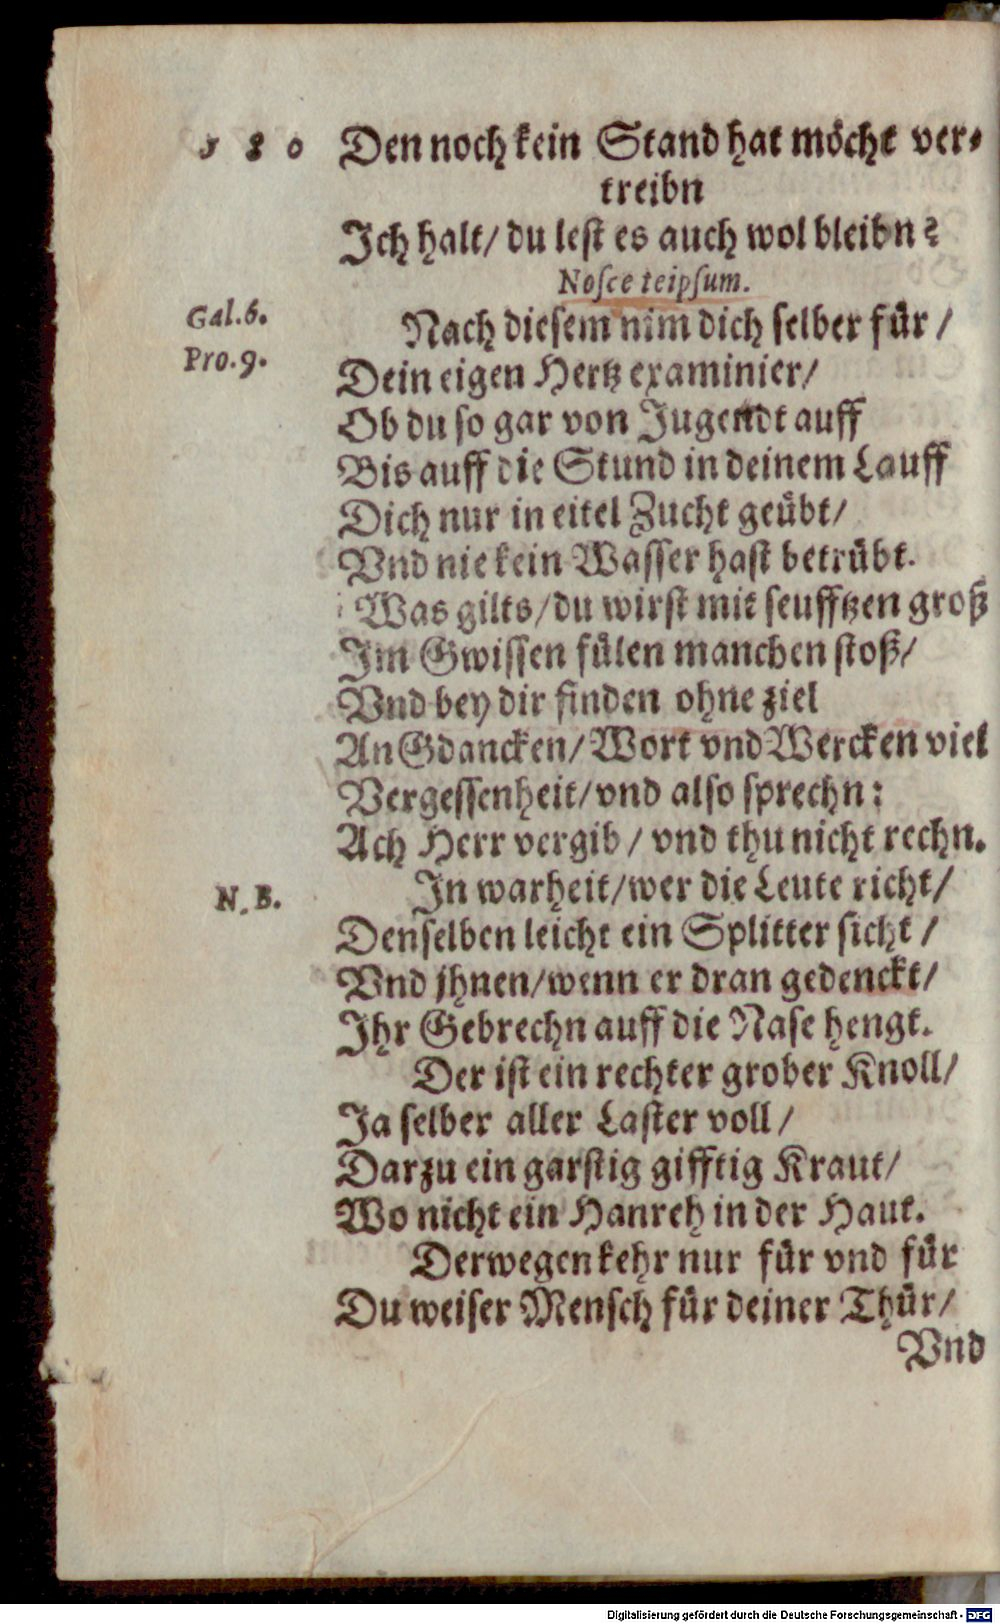 580 Den noch kein Stand hat möcht ver⸗
treibn
Ich halt/ du lest es auch wol bleibn?
Nosce teipsum.
Gal. 6. Nach diesem nim dich selber für /
Pro. 9. Dein eigen Hertz examinier/
Ob du so gar von Jugendt auff
Bis auff die Stund in deinem Lauff
Dich nur in eitel Zucht geübt/
Vnd nie kein Wasser hast betrübt.
Was gilts/ du wirst mit seufftzen groß
Im Gwissen fülen manchen stoß/
Vnd bey dir finden ohne ziel
An Gdancken/ Wort vnd Wercken viel
Vergessenheit/ vnd also sprechn:
Ach Herr vergib / vnd thu nicht rechn.
N. B. In warheit/ wer die Leute richt/
Denselben leicht ein Splitter sicht /
Vnd jhnen/ wenn er dran gedenckt/
Ihr Gebrechn auff die Nase hengt.
Der ist ein rechter grober Knoll/
Ja selber aller Laster voll /
Darzu ein garstig gifftig Kraut/
Wo nicht ein Hanreh in der Haut.
Derwegen kehr nur für vnd für
Du weiser Mensch für deiner Thür/
Vnd
Digitalisierung gefördert durch die Deutsche Forschungsgemeinschaft - DFG